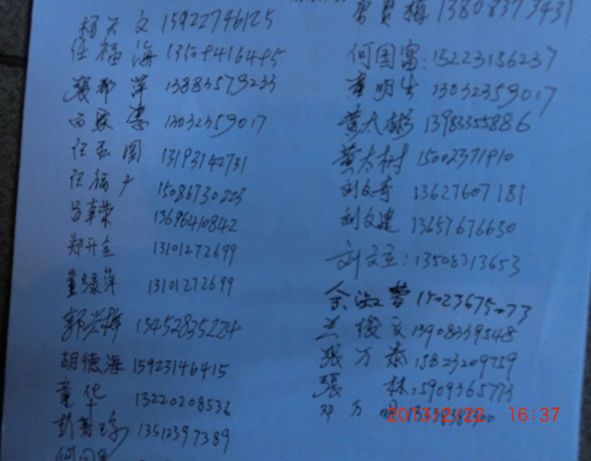 杨天文 15922746125
任福海
13883579233
13032359017
任 国 13193142731
任福广 15086730223
吕春荣 13696410842
郑开全 13101272699
董绿萍 13101272699
郭兴梅 13452835224
胡德海 15923146415
童华 13220208536
13512397389
13808373431
何国富:15223156237
董明生 13032359017
黄太彬 13983355886
黄太树 15002371910
刘文奇 13627607181
刘文建 13657676630
刘文立:13508313653
余淑
兰俊文 13908339548
张万泰 15823209759
张 林
邓万明
2013/2/22 16:37